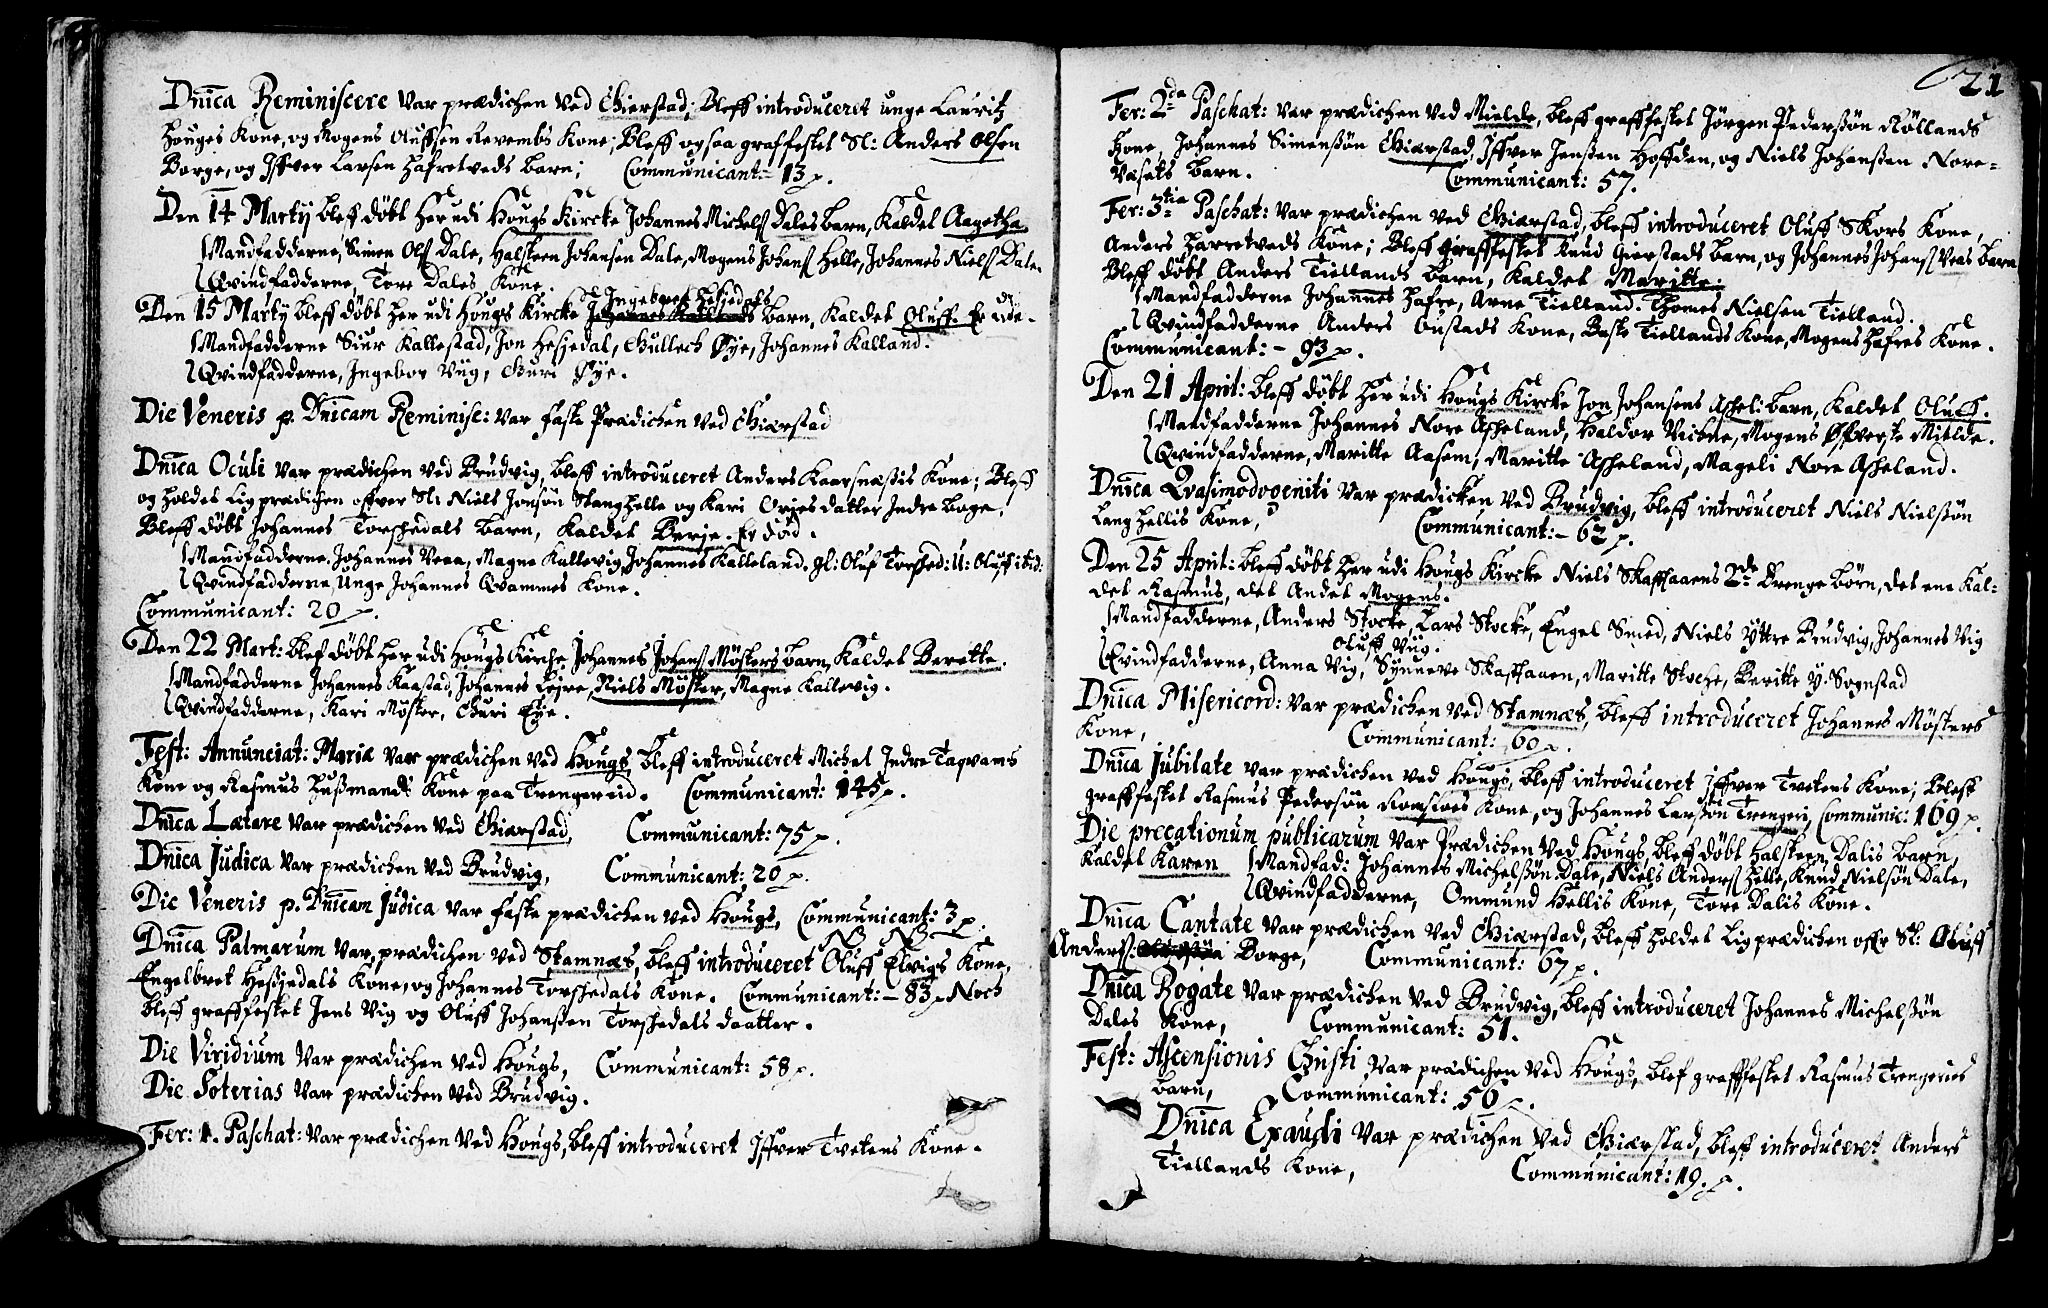 Dnica Reminiscere var prædichen ved Gierstad; Bleff introduceret unge Lauritz
Houges Kone, og Mogens Oluffsen Kone; Bleff ogsaa graffestet Sl: Anders Olsen
Borge, og Iffver Larsen Hafretveds barn; Communicant= 13 p.
Den 14 Martij bleff døbt her udi Hougs Kircke Johannes Michels Dales barn, Kaldet Aagetha
Mandfadderne, Simen Ols Dale, Halsteen Johansen Dale, Mogens Johans Helle, Johannes Niels Dale.
Qvindfadderne, Tore Dales Kone.
Ingebret Hesjedals
Den 15 Martij bleff døbt her udi Hougs Kircke barn, Kaldet Oluff. Er død.
Mandfadderne Siur Kallestad, Jon Hesjedal, Gullech Øye, Johannes Kalland.
Qvindfadderne, Ingebor Vüg, Guri Øye.
Die Veneris p. Dnicam Reminisc: var faste Prædichen ved Giærstad
Dnica Oculi var prædichen ved Brudvig, bleff introduceret Anders Kaarsnæssis Kone; Bleff
og holdet Lig prædichen offver Sl: Niels Jonsøn Stanghelle og Kari datter Indre boge.
Bleff døbt Johannes Torshedals barn, Kaldet Berje. Er død.
Mandfadderne. Johannes Veaa, Magne Kallevig, Johannes Kalleland. gl: Oluf Torshed: U: Oluff ibid:
Qvindfadderne, Unge Johannes Qvammes Kone.
Communicant: 20 p.
Den 22 Mart: bleff døbt her udi Hougs Kirche Johannes Johans Mösters barn, Kaldet Beritte.
Mandfadderne Johannes Kaastad, Johannes Lojre, Niels Möster, Magne Kallevig.
Qvindfadderne, Kari Möster, Guri Eye.
Fest: Annunciat: Mariæ var prædichen ved Hougs, bleff introduceret Michel Indre Taqvams
Kone og Rasmus Hussmands Kone paa Trengereid. Communicant: 145 p.
Dnica Lætare var prædichen ved Giærstad, Communicant: 75 p.
Dnica Judica var prædichen ved Brudvig, Communicant: 20 p.
Die Veneris p. Dnicam Judica var faste prædichen ved Hougs, Communicant: 3 p.
Dnica Palmarum var, prædichen ved Stamnæs, bleff introduceret Oluff Elvigs Kone,
Engelbret Hessjedals Kone, og Johannes Torshedals Kone. Communicant:- 83 p Noch
bleff graffestet Jens Vig og Oluff Johanssen Torshedals daatter.
Die Viridium var prædichen ved Hougs, Communicant: 58 p.
Die Soterias var prædichen ved Brudvig.
Fer: 1. Paschat: var prædichen ved Hougs, bleff introduceret Iffver Tvetens Kone.
21
Fer: 2da Paschat: var prædichen ved Mielde, bleff graffestet Jörgen Pederssön Röllands
Kone, Johannes Simenssön Giærstad, Iffver Jenssen Hoffden, og Niels Johanssen Nore-
Væsets barn. Communicant: 57.
Fer: 3tia Paschat: var prædichen ved Giærstad, bleff introduceret Oluff Skors Kone,
Anders Harretveds Kone; Bleff graffestet Knud Gierstads barn, og Johannes Johans Veas barn
Bleff døbt Anders Tiellands barn, Kaldet Maritte.
Mandfadderne Johannes Hafre, Arne Tielland. Thomes Nielsen Tielland.
Qvindfadderne Anders Oustads Kone, Baste Tiellands Kone, Mogens Hafres Kone.
Communicant:- 93 p.
Den 21 April: bleff døbt her udi Hougs Kircke Jon Johansens Asheli barn, Kaldet Oluff.
Mandfadderne Johannes Nore Asheland, Haldor Vicone, Mogens Øfverste Mielde.
Qvindfadderne, Maritte Aasem, Maritte Asheland, Mageli Nore Asheland.
Dnica Qvasimodogeniti var prædicken ved Brudvig, bleff introduceret Niels Nielssön
Langhellis Kone, Communicant:- 62 p.
Den 25 April: bleff døbt her udi Hougs Kircke Niels Skafthaarns 2de Drenge børn, det ene Kal-
det Rasmus, det Andet Mogens.
Mandfadderne, Anders Stocke, Lars Stocke, Engel Smed, Niels Yttre Brudvig, Johannes Vig
Oluff Vüg.
Qvindfadderne, Anna Vig, Synneve Skafthauen, Maritte Stoche, Beritte Y. Sognstad
Dnica Misericord: var prædichen ved Stamnæs, bleff introduceret Johannes Mösters
Kone, Communicant: 60 p.
Dnica Jubilate var prædichen ved Hougs, bleff introduceret Iffver Tvetens Kone; Bleff
graffestet Rasmus Pedersön Romsloes Kone, og Johannes Larssön Trengeri, Communic: 169 p.
Die precationum publicarum var Prædichen ved Hougs, bleff døbt Halsteen Dalis barn,
Kaldet Karen Mandfad: Johannes Michelssön Dale, Niels Anders Helle, Knud Nielsön Dale,
Qvindfadderne, Ommund Hellis Kone, Tore Dalis Kone.
Dnica Cantate var prædichen ved Giærstad, bleff holdet Lig prædichen offr Sl: Oluff
Anders: Borge, Communicant: 67 p.
Dnica Rogate var prædichen ved Brudvig, bleff introduceret Johannes Michelssön
Dales Kone, Communicant: 51.
Fest: Ascensionis Christi var prædichen ved Hougs, blef graffestet Rasmus Trengeries
barn, Communicant: 50 p.
Dnica Exaudi var prædichen ved Giærstad, bleff introduceret Anders
Tiellands Kone, Communicant: 19. p.